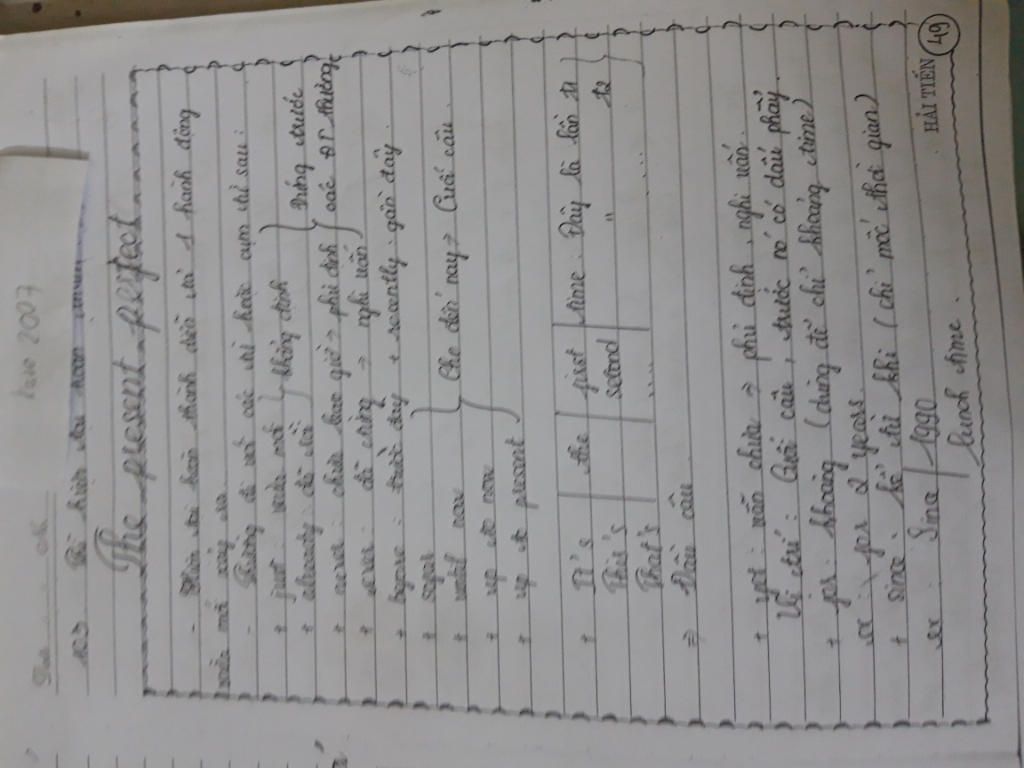 The present perfect
- Hiện tại hoàn thành diễn tả 1 hành động
vừa mới xảy ra
- Thường đi với các từ hoặc cụm từ sau:
+ just: vừa mới } khẳng định } Đứng trước
+ already: đã rồi } các ĐT thường
+ never: chưa bao giờ → phủ định
+ ever: đã từng → nghi vấn
+ before: trước đây + recently: gần đây
+ sofar
+ until now } Cho đến nay → Cuối câu
+ up to now
+ up to present
+ It's | the | first | time: Đây là lần t1
This's | second | " t2
That's | ....
⇒ Đầu câu
+ yet: vẫn chưa ⇒ phủ định, nghi vấn.
Vị trí: Cuối câu, trước nó có dấu phẩy
+ for: khoảng (dùng để chỉ khoảng time)
ex: for 2 years
+ since: kể từ khi (chỉ mốc thời gian)
ex: Sina | 1990
lunch time.
HẢI TIẾN
49